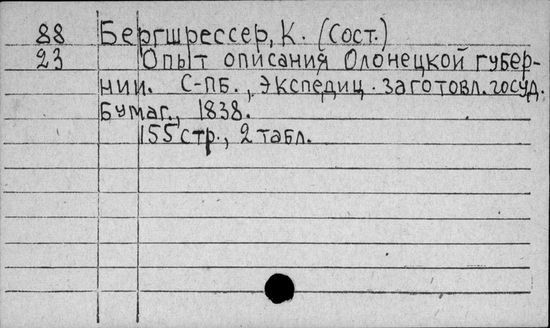 88 Бергшрессер, К. (Сост.)
23 Опыт описания Олонецкой губер-
нии. С-Пб., Экспедиц. заготовл. госуд.
бумаг., 1838.
155 стр., 2 табл.